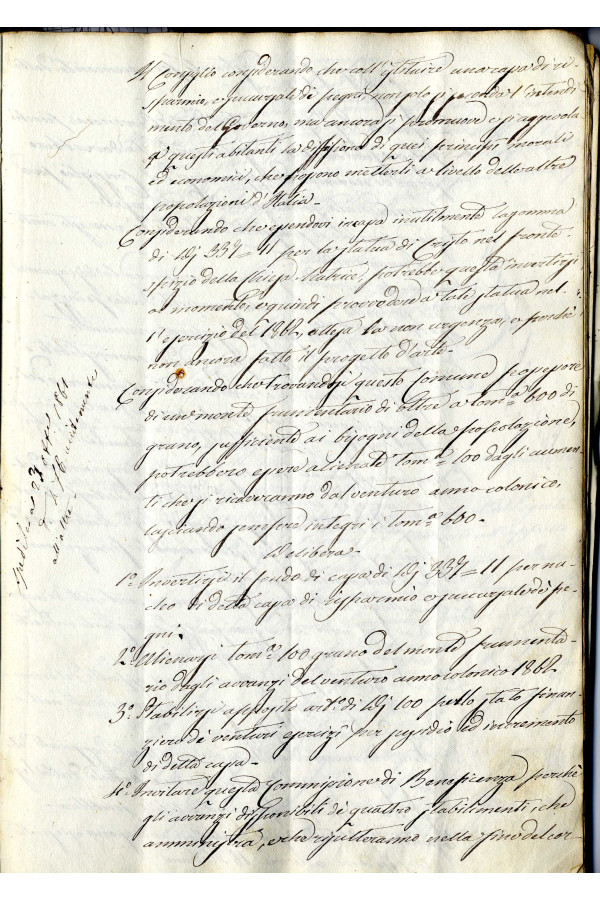 Il Consiglio considerando che coll'istituire una cassa di ri-
sparmio, e succursale di pegni non solo si seconda l'intendi-
mento del Governo, ma ancora si promuove e si agevola
a questi abitanti la diffusione di quei principi morali
ed economici, che possono metterli a livello delle altre
popolazioni d'Italia -
Considerando che essendovi in cassa inutilmente la somma
di D.i 337 = 11 per la statua di Cristo nel fronte-
spizio della Chiesa Matrice, potrebbe questa invertirsi
a momenti, e quindi provvedere a tale statua nel
l'esercizio del 1862, attesa la non urgenza, e perchè
non ancora fatto il progetto d'arte -
Considerando che trovandosi questo Comune possessore
di un monte frumentario di oltre a tom.a 600 di
grano, sufficiente ai bisogni della popolazione,
potrebbero essere alienate tom.a 100 dagli aumen-
ti che si ricaveranno dal venturo anno colonico,
lasciando sempre integri i tom.a 600 -
Delibera -
1.o Invertirsi il fondo di cassa di D.i 337 = 11 per nu-
cleo di detta cassa di risparmio e succursale di pe-
gni.
2.o Alienarsi tom.a 100 grano del monte frumenta-
rio dagli avanzi del venturo anno colonico 1862
3.o Stabilirsi apposito art.o di D.i 100 nello stato finan-
ziero de' venturi esercizi per sussidio ed incremento
di detta cassa -
4.o Invitare questa Commissione di Beneficenza perchè
gli avanzi disponibili de' quattro stabilimenti, che
amministra, e che risulteranno nella fine del cor-
Spedita a 23 1861
all'altre -